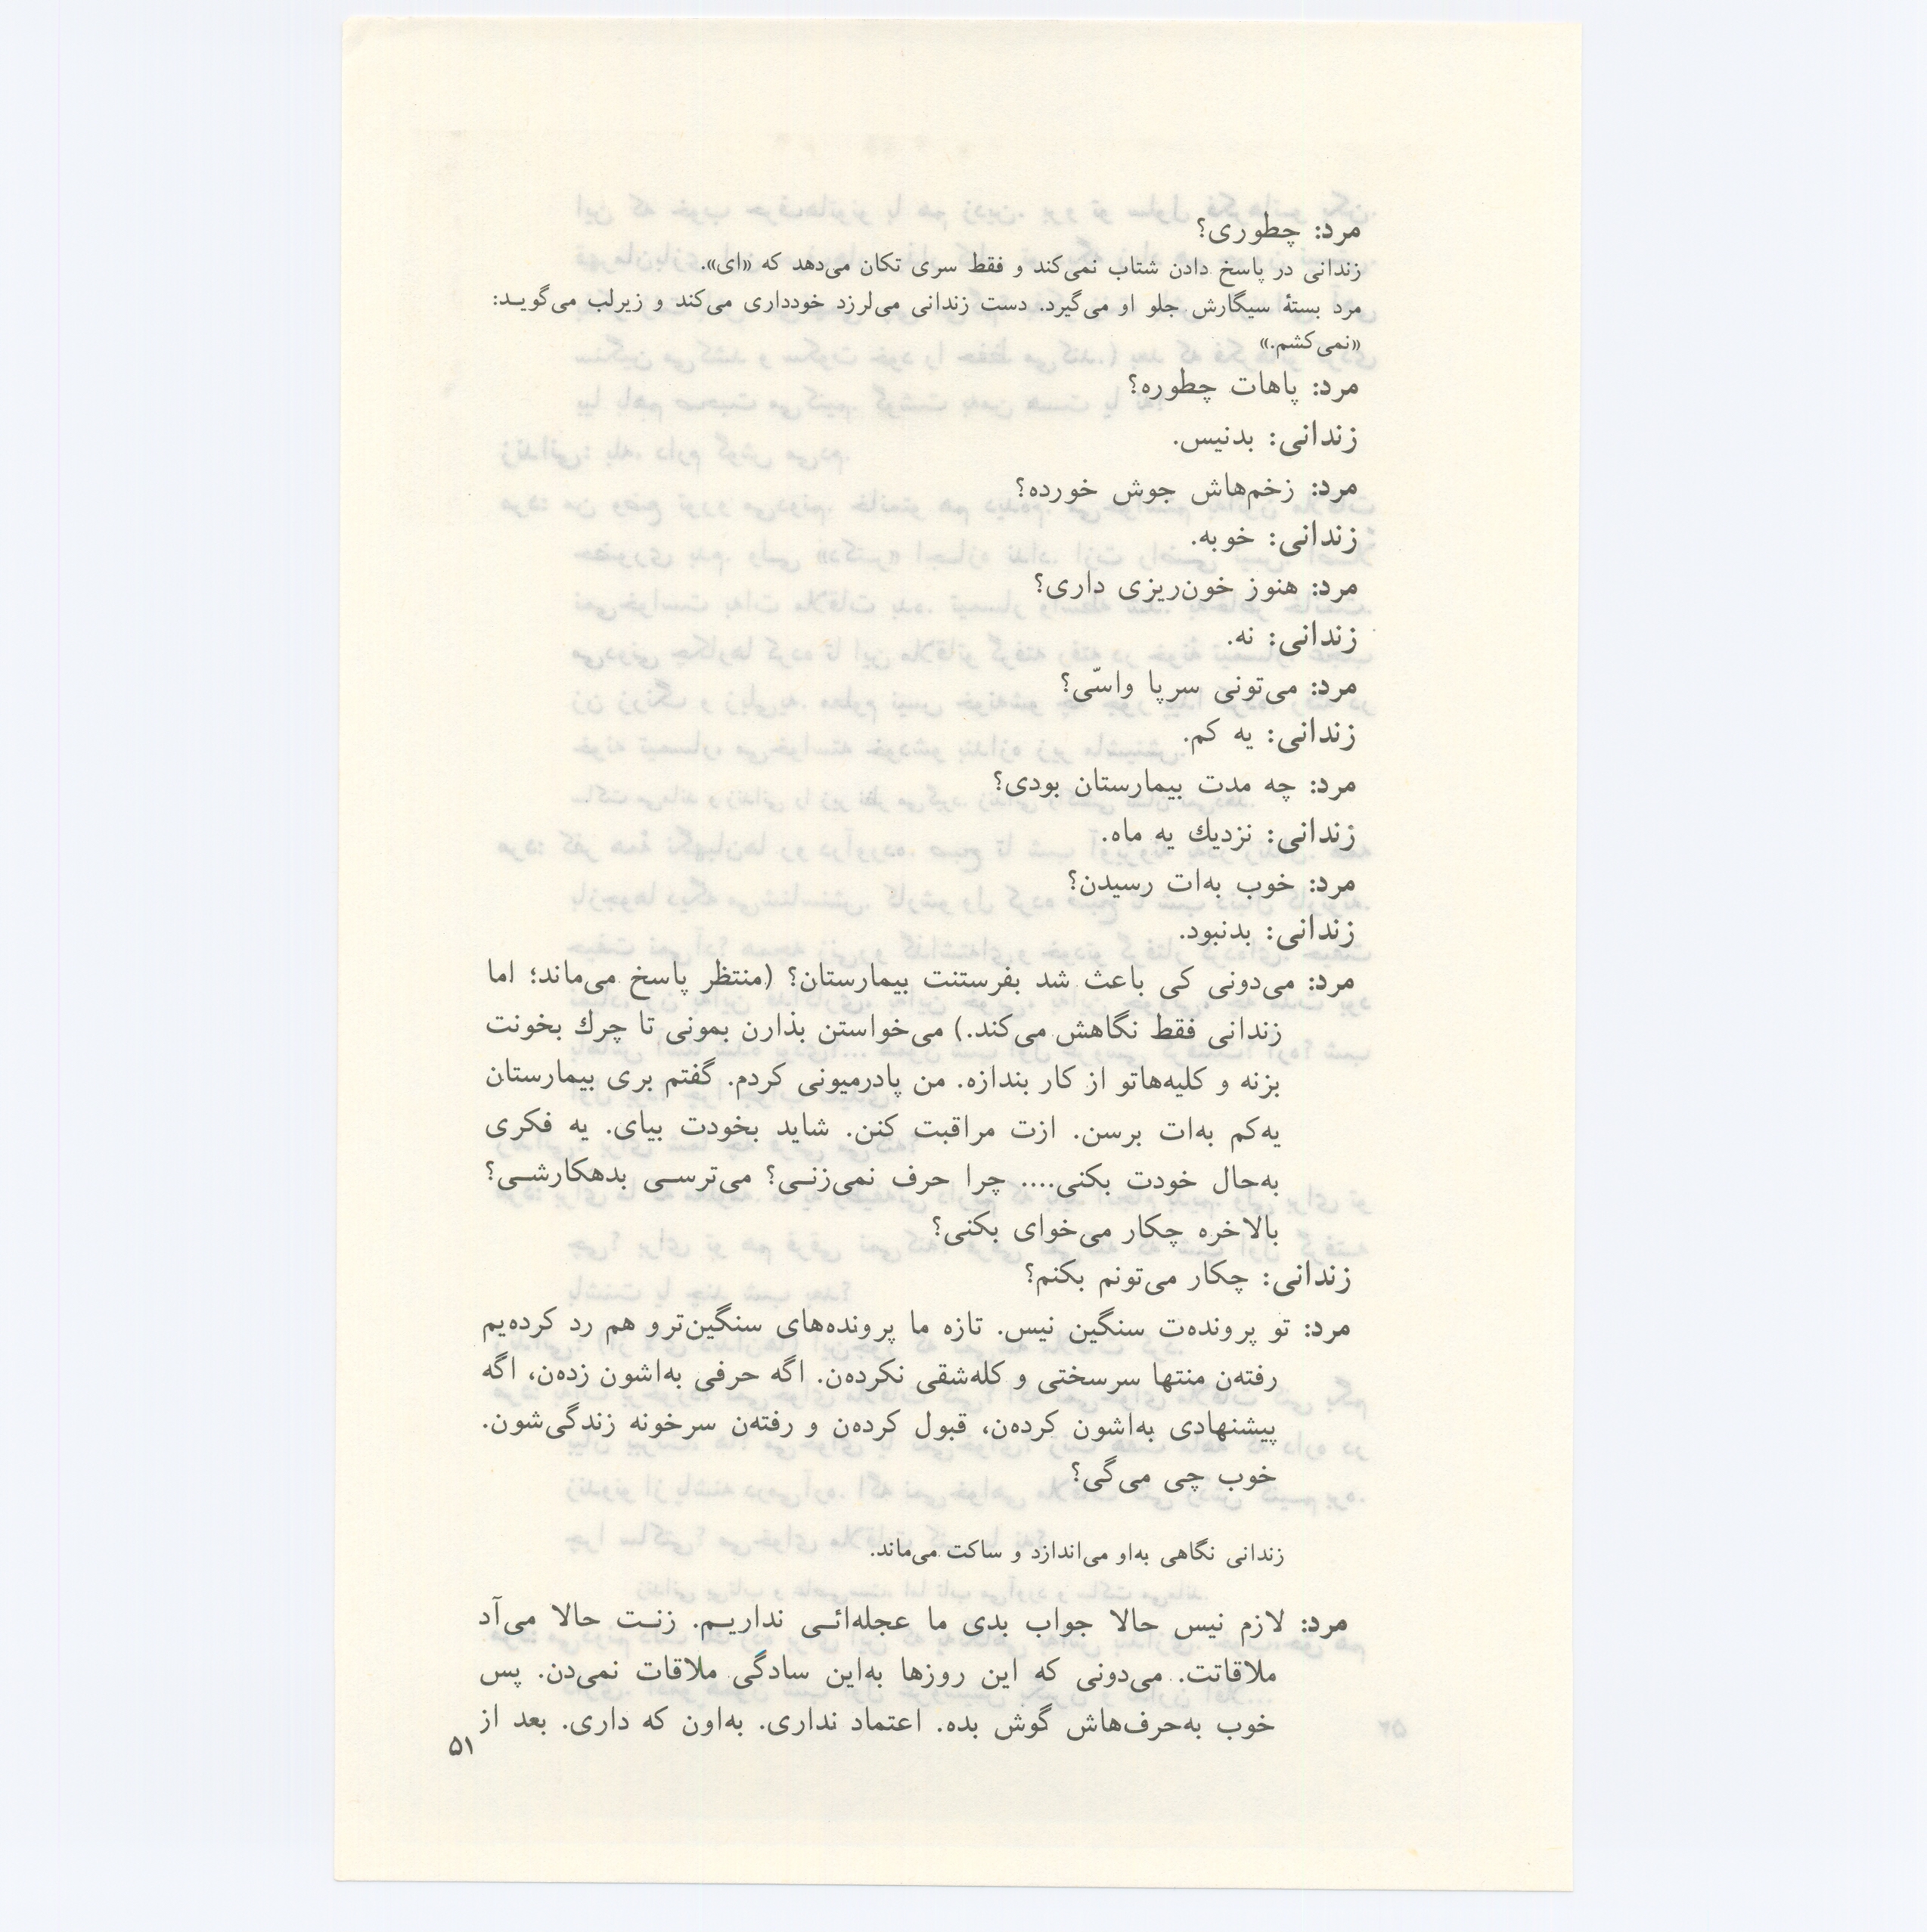 مرد: چطوری؟
زندانی در پاسخ دادن شتاب نمی‌کند و فقط سری تکان می‌دهد که «ای».
مرد بستهٔ سیگارش جلو او می‌گیرد. دست زندانی می‌لرزد خودداری می‌کند و زیرلب می‌گویـد:
«نمی‌کشم.»
مرد: پاهات چطوره؟
زندانی: بدنیس.
مرد: زخم‌هاش جوش خورده؟
زندانی: خوبه.
مرد: هنوز خون‌ریزی داری؟
زندانی: نه.
مرد: می‌تونی سرپا واسّی؟
زندانی: یه کم.
مرد: چه مدت بیمارستان بودی؟
زندانی: نزدیك یه ماه.
مرد: خوب به‌ات رسیدن؟
زندانی: بدنبود.
مرد: می‌دونی کی باعث شد بفرستنت بیمارستان؟ (منتظر پاسخ می‌ماند؛ اما
زندانی فقط نگاهش می‌کند.) می‌خواستن بذارن بمونی تا چرك بخونت
بزنه و کلیه‌هاتو از کار بندازه. من پادرمیونی کردم. گفتم بری بیمارستان
یه‌کم به‌ات برسن. ازت مراقبت کنن. شاید بخودت بیای. یه فکری
به‌حال خودت بکنی.... چرا حرف نمی‌زنـی؟ می‌ترسـی بدهکارشـی؟
بالاخره چکار می‌خوای بکنی؟
زندانی: چکار می‌تونم بکنم؟
مرد: تو پرونده‌ت سنگین نیس. تازه ما پرونده‌های سنگین‌ترو هم رد کرده‌یم
رفته‌ن منتها سرسختی و کله‌شقی نکرده‌ن. اگه حرفی به‌اشون زده‌ن، اگه
پیشنهادی به‌اشون کرده‌ن، قبول کرده‌ن و رفته‌ن سرخونه زندگی‌شون.
خوب چی می‌گی؟
زندانی نگاهی به‌او می‌اندازد و ساکت می‌ماند.
مرد: لازم نیس حالا جواب بدی ما عجله‌ائـی نداریـم. زنـت حالا می‌آد
ملاقاتت. می‌دونی که این روزها به‌این سادگی ملاقات نمی‌دن. پس
خوب به‌حرف‌هاش گوش بده. اعتماد نداری. به‌اون که داری. بعد از
۵۱